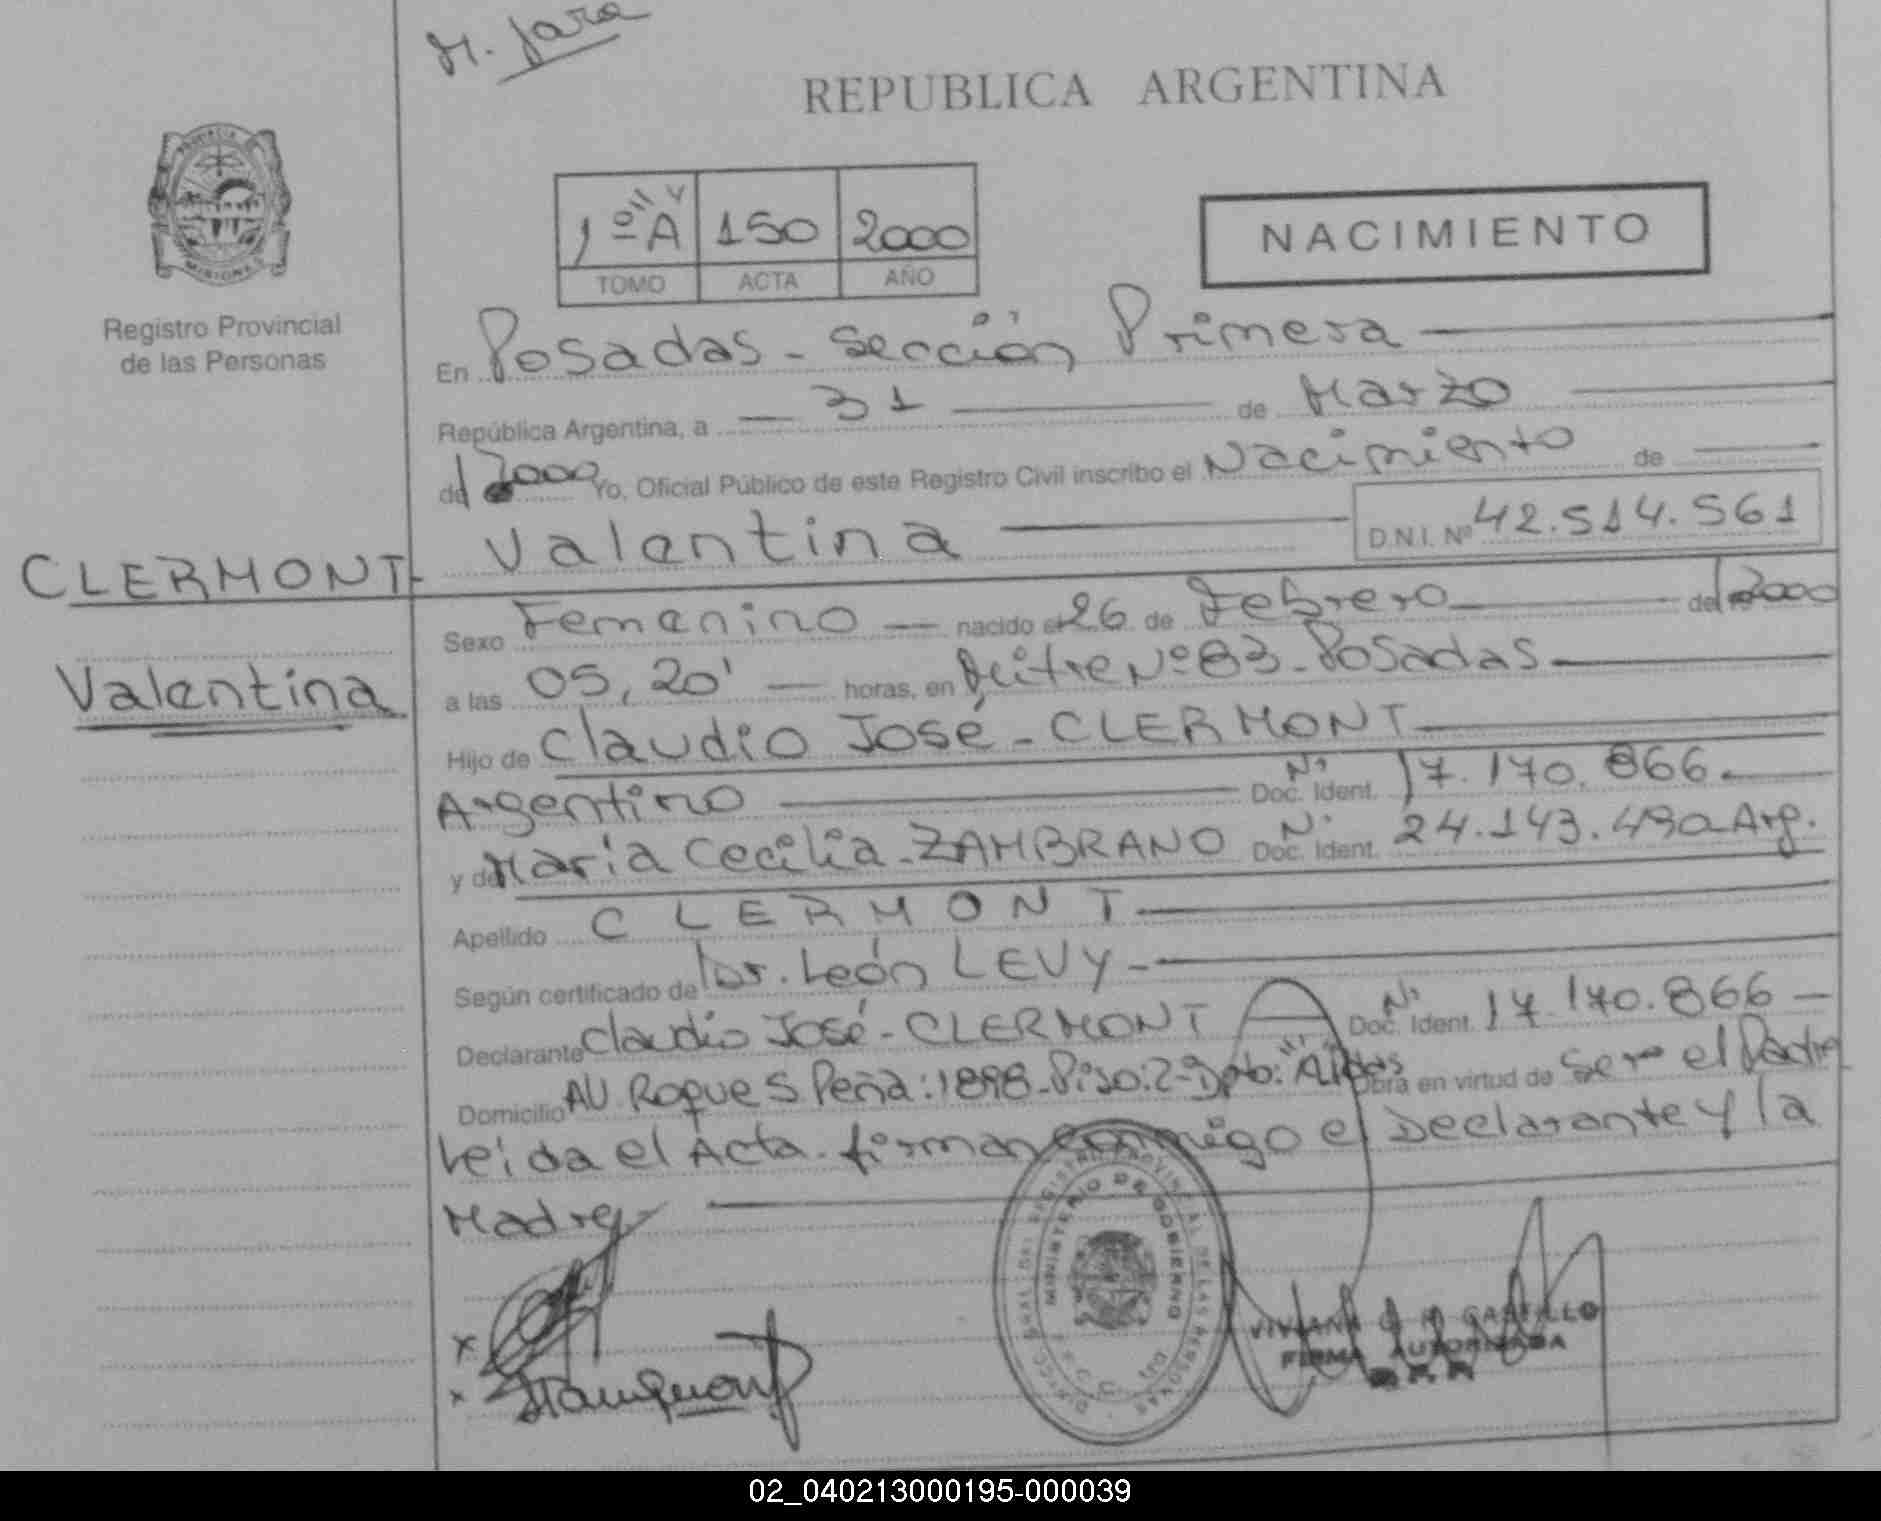 M. Jara
REPUBLICA ARGENTINA
PROVINCIA
MISIONES
Registro Provincial
de las Personas
1º "A" 150 2000
TOMO ACTA AÑO
NACIMIENTO
En Posadas - Sección Primera
República Argentina, a 31 de Marzo
de 2000 Yo, Oficial Público de este Registro Civil inscribo el Nacimiento de
Valentina D.N.I. Nº 42.514.561
CLERMONT
Valentina
Sexo Femenino nacido el 26 de Febrero de 2000
a las 05,20' horas, en Mitre Nº 83 - Posadas
Hijo de Claudio José - CLERMONT
Argentino Doc. Ident. Nº 17.170.866.
y de María Cecilia - ZAMBRANO Doc. Ident. Nº 24.143.490 Arg.
Apellido CLERMONT
Según certificado de Dr. León LEVY
Declarante Claudio José - CLERMONT Doc. Ident. Nº 17.170.866
Domicilio AV Roque S Peña: 1898 - Piso: 2 - Dpto: "A" Pdas Obra en virtud de Ser el Padre
Leída el Acta. firman conmigo el Declarante y la
Madre
x
x
MINISTERIO DE GOBIERNO
VIVIANA CASTILLO
FIRMA AUTORIZADA
02_040213000195-000039